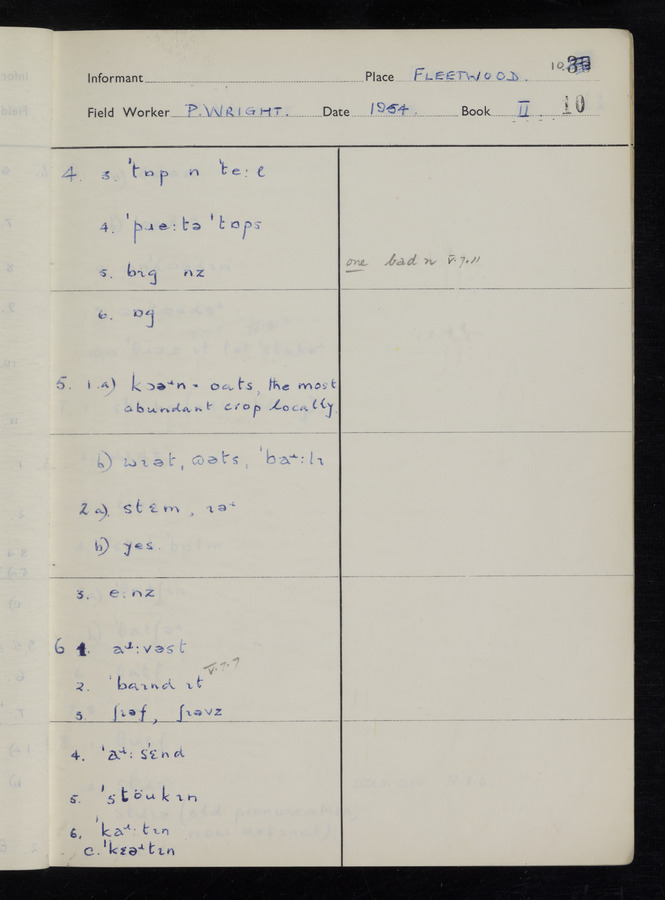 Informant Place FLEETWOOD.
Field Worker P. WRIGHT. Date 1954. Book II 10
4. 3. ˈtɒp n ˈte:l
4. ˈpɹe:tə ˈtɒps
5. bɪg nz one bad n V.7.11
6. ɒg
5. 1.a) kɔəʴn = oats, the most
abundant crop locally.
b) wɪət, ʊəts, ˈbaʴ:lɪ
2 a). stɛm, ɪəʴ
b) yes.
3. e:nz
6 1. aʴ:vəst
2. ˈbaɪnd ɪt V.7.7
3. ʃɪəf, ʃɪəvz
4. ˈaʴ: sɛnd
5. ˈstöukɪn
6. ˈkaʴ:tɪn
c. ˈkɛəʴtɪn